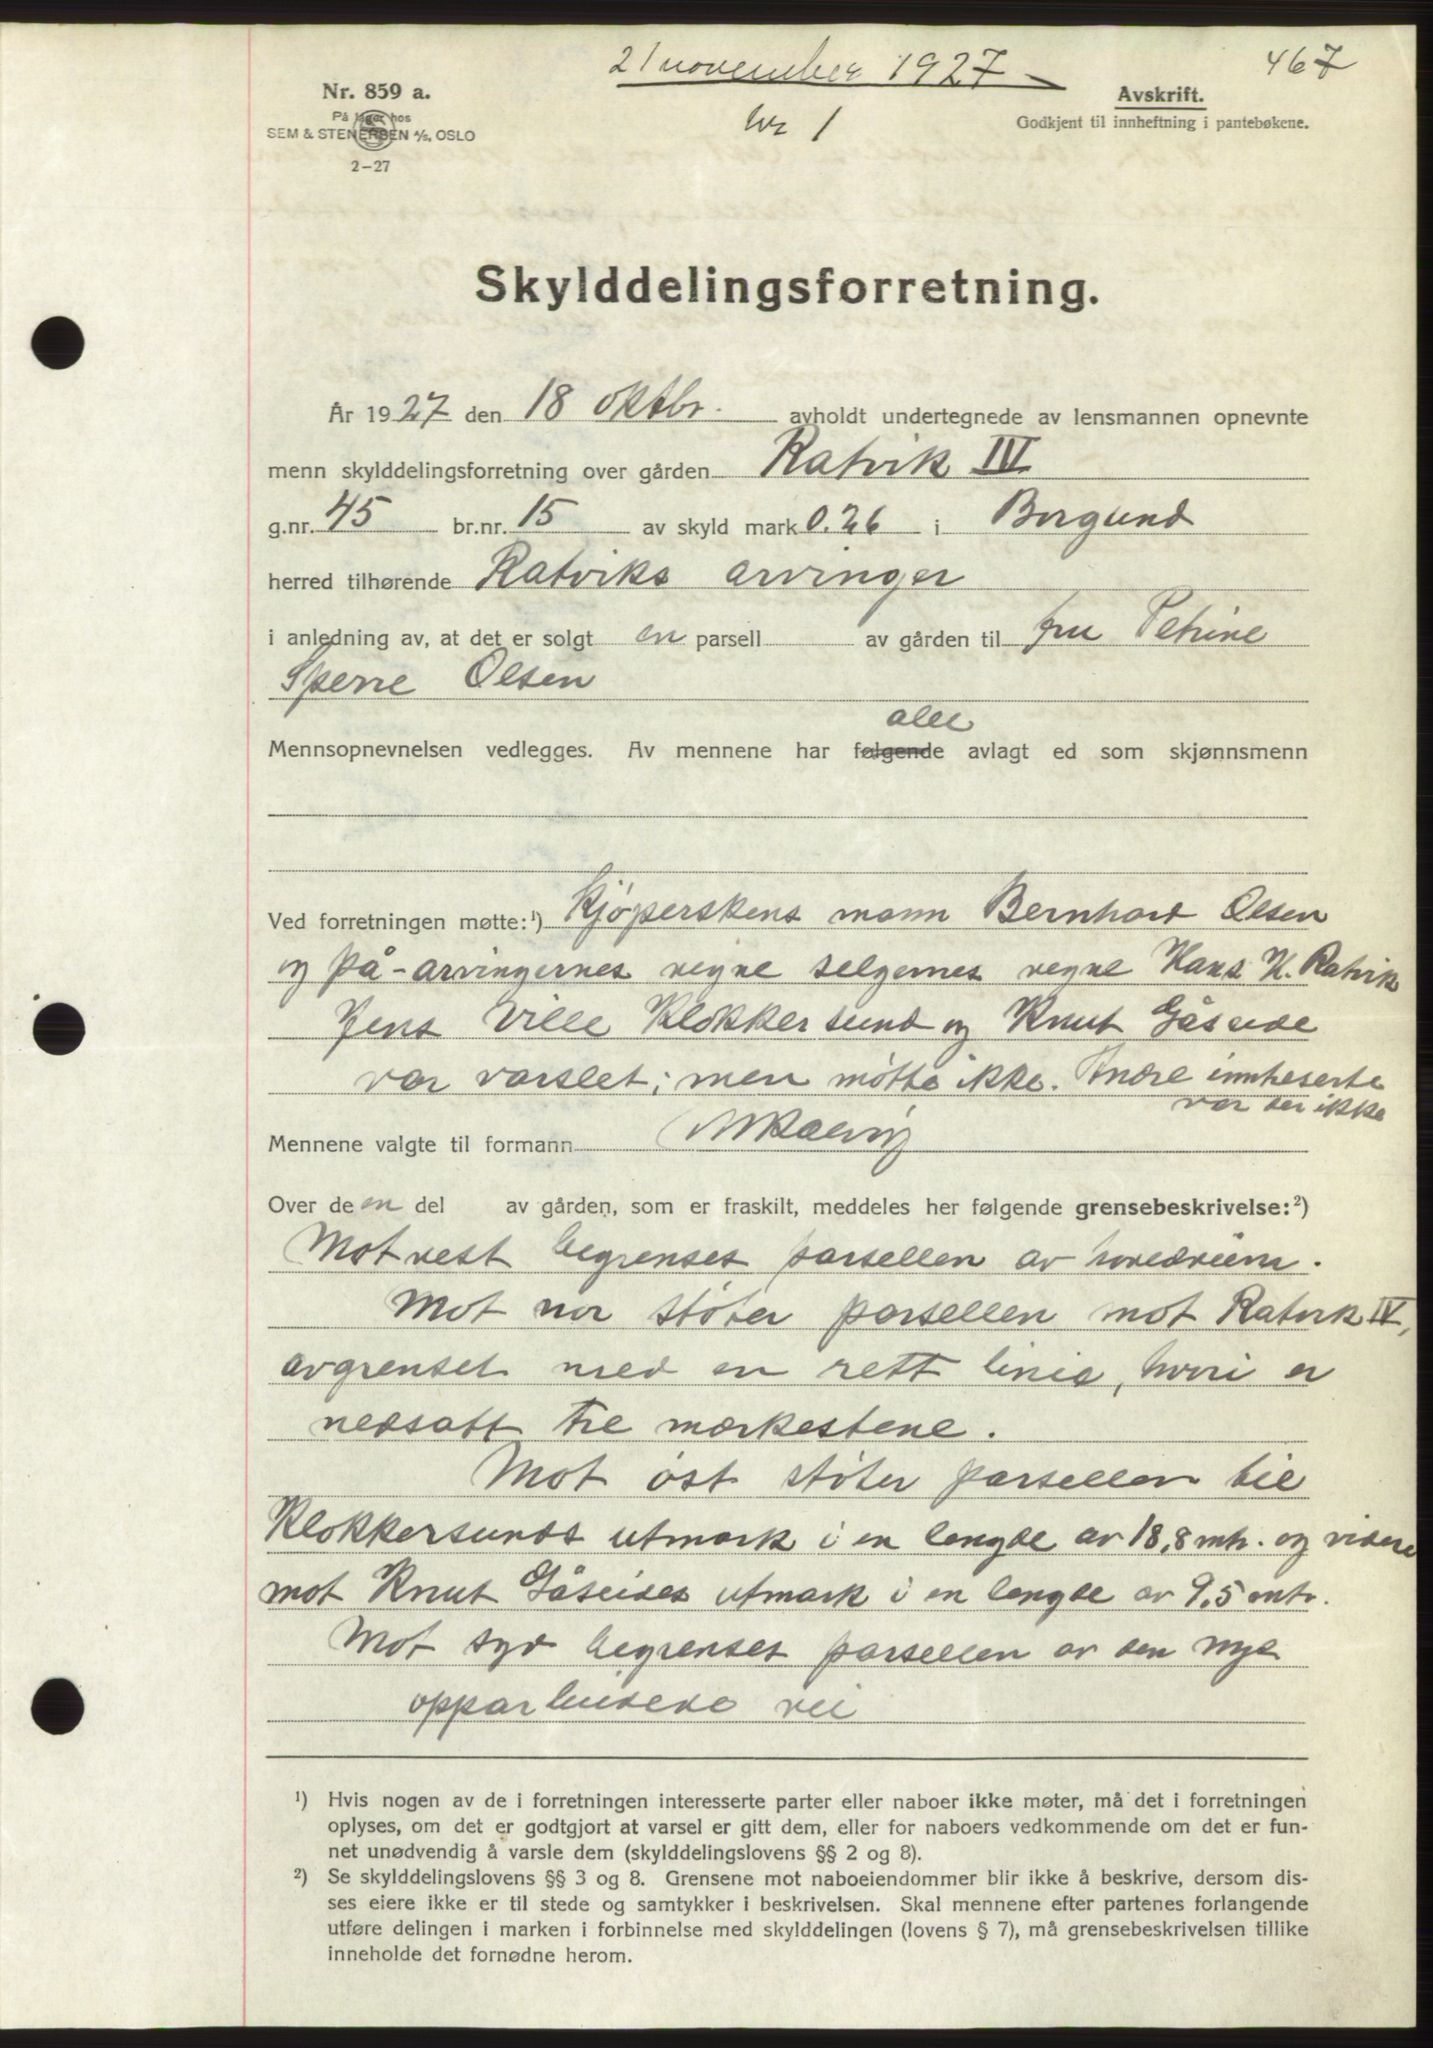 21 november 1927
467
Nr. 859 a.
På lager hos
SEM & STENERSEN A/S, OSLO
2-27
Nr 1
Avskrift.
Godkjent til innheftning i pantebøkene.
Skylddelingsforretning.
År 1927 den 18 oktbr. avholdt undertegnede av lensmannen opnevnte
menn skylddelingsforretning over gården Ratvik IV
g.nr. 45 br.nr. 15 av skyld mark 0.26 i Borgund
herred tilhørende Ratviks arvinger
i anledning av, at det er solgt en parsell av gården til fru Petrine
Sperre Olsen
alle
Mennsopnevnelsen vedlegges. Av mennene har følgende avlagt ed som skjønnsmenn
Ved forretningen møtte:¹) Kjøperskens mann Bernhard Olsen
og på-arvingernes vegne selgernes vegne Hans K. Ratvik
Jens Ville Klokkersund og Knut Gåseide
var varslet; men møtte ikke. Andre innteserte
var der ikke
Mennene valgte til formann
Over de en del av gården, som er fraskilt, meddeles her følgende grensebeskrivelse:²)
Mot vest begrenses parsellen av hovedveien.
Mot nor støter parsellen mot Ratvik IV,
avgrenset med en rett linie, hvori er
nedsatt tre merkestene.
Mot øst støter parsellen til
Klokkersunds utmark i en lengde av 18,8 mtr. og videre
mot Knut Gåseides utmark i en lengde av 9,5 mtr.
Mot syd begrenses parsellen av den nye
opparbeidede vei
¹) Hvis nogen av de i forretningen interesserte parter eller naboer ikke møter, må det i forretningen
oplyses, om det er godtgjort at varsel er gitt dem, eller for naboers vedkommende om det er fun-
net unødvendig å varsle dem (skylddelingslovens §§ 2 og 8).
²) Se skylddelingslovens §§ 3 og 8. Grensene mot naboeiendommer blir ikke å beskrive, dersom dis-
ses eiere ikke er til stede og samtykker i beskrivelsen. Skal mennene efter partenes forlangende
utføre delingen i marken i forbinnelse med skylddelingen (lovens § 7), må grensebeskrivelsen tillike
inneholde det fornødne herom.